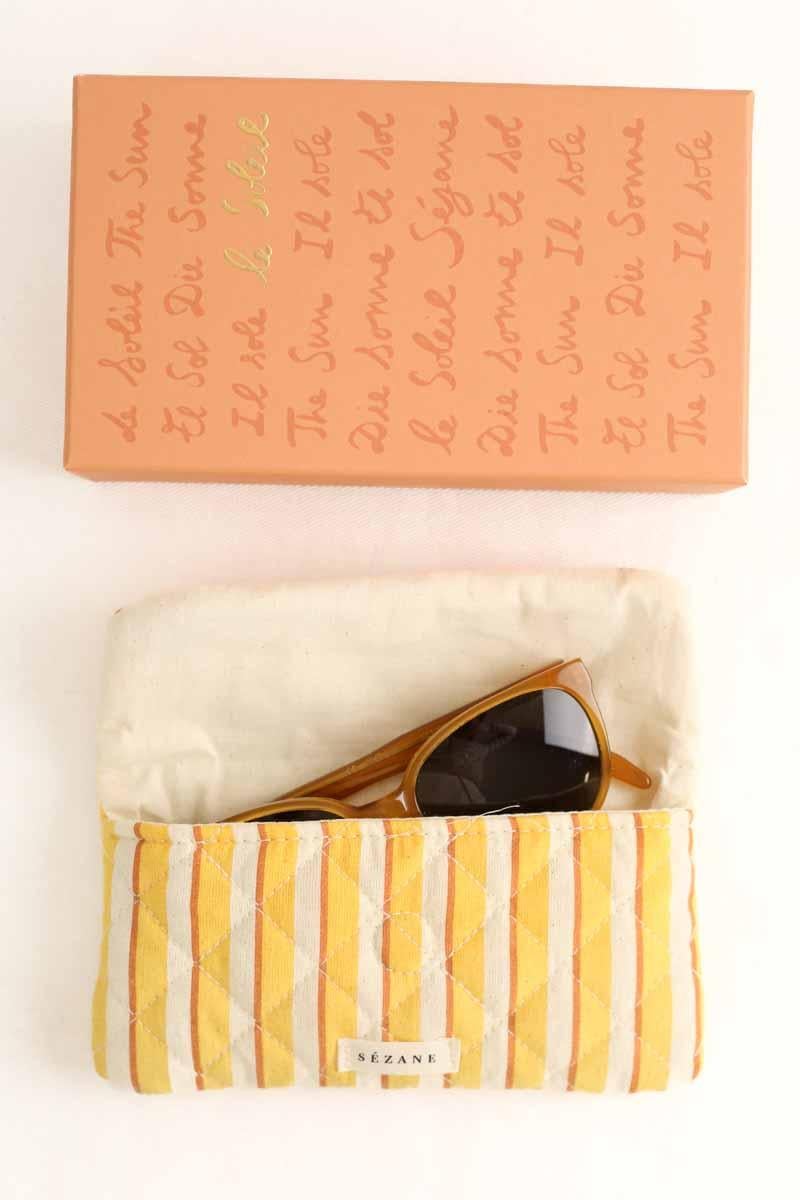 de Soleil The Sun
El Sol Die Sonne
Il sole le Soleil
The Sun Il sole
Die sonne El sol
le Soleil Sézane
Die sonne El sol
The Sun Il sole
El Sol Die Sonne
The Sun Il sole
SÉZANE